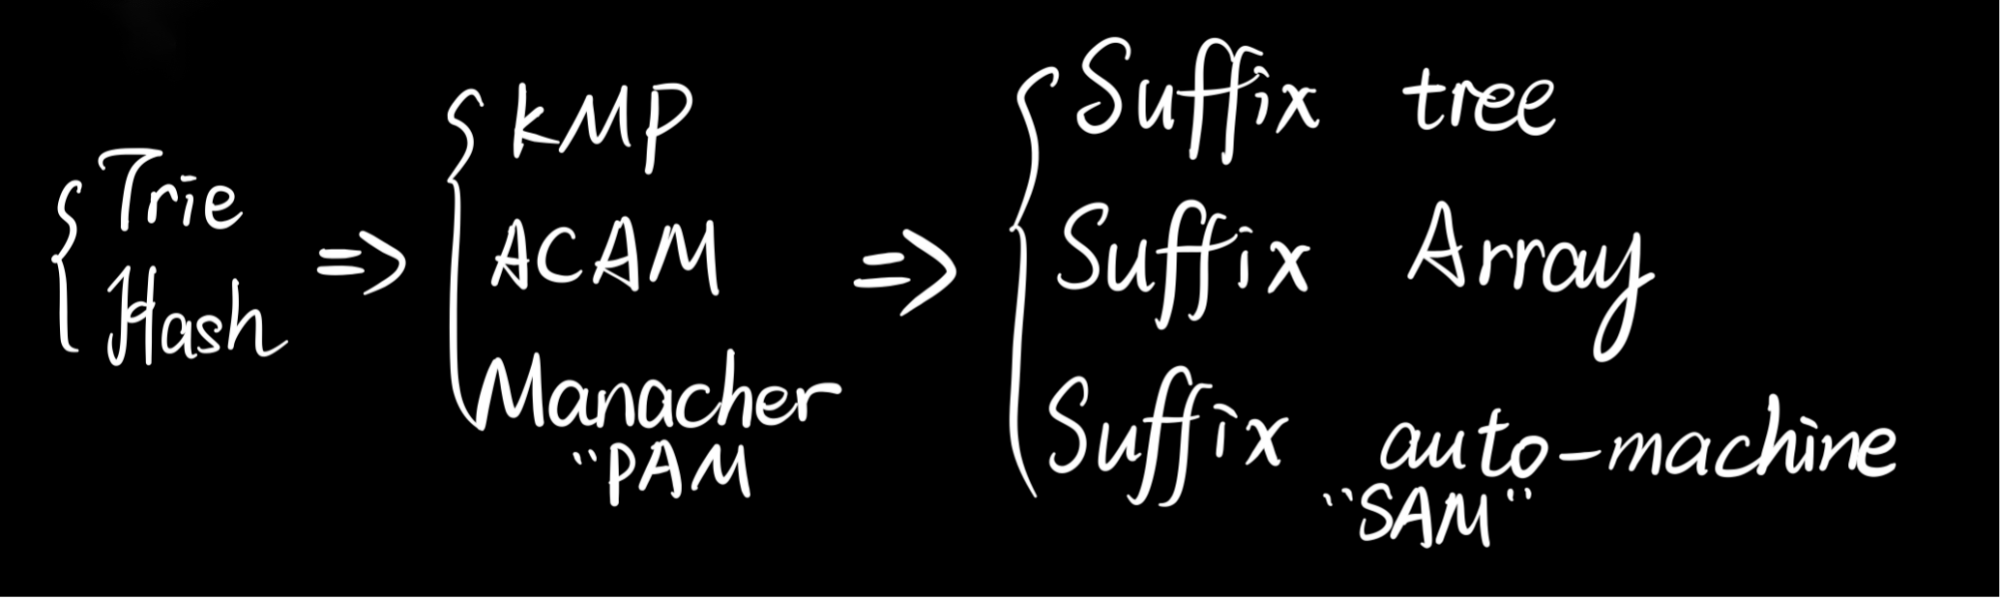 Trie
Hash
=>
KMP
ACAM
Manacher
"PAM
=>
Suffix tree
Suffix Array
Suffix auto-machine
"SAM"